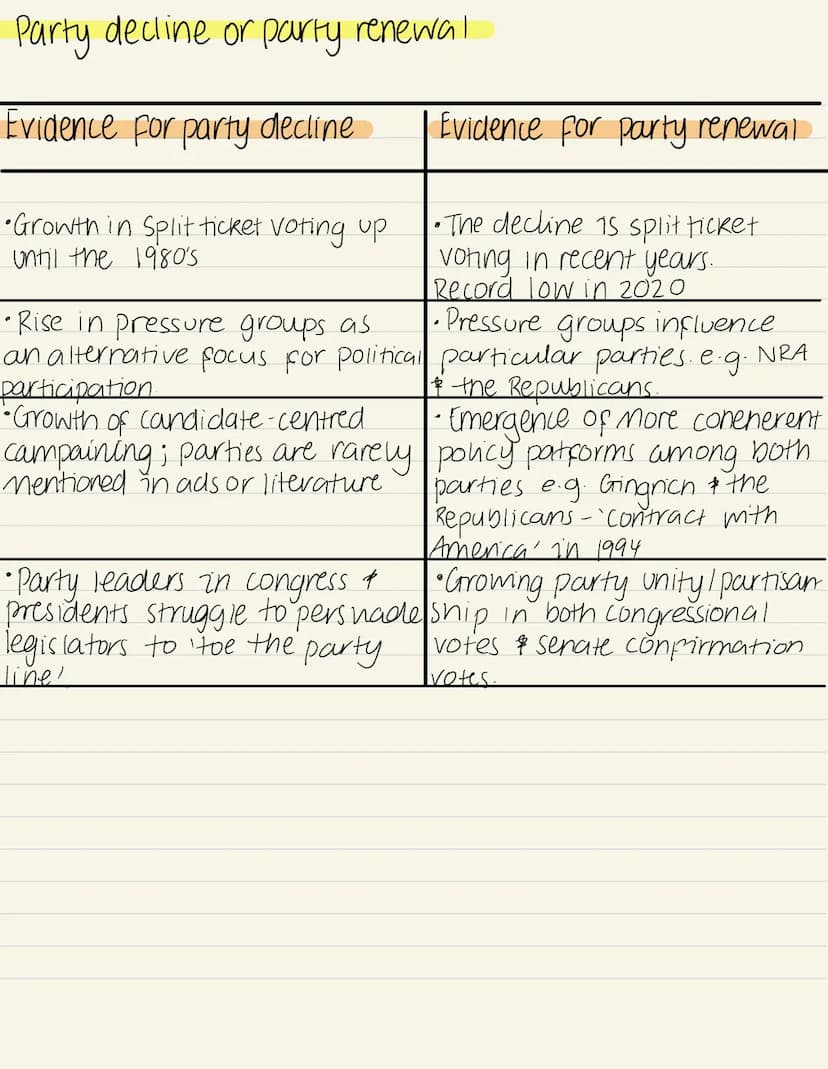 Party decline or party renewal
Evidence for party decline
Evidence for party renewal
•Growth in split ticket voting up
until the 1980's
•The decline is split ticket
voting in recent years.
Record low in 2020
•Rise in pressure groups as
an alternative focus for political
participation.
•Pressure groups influence
particular parties. e.g. NRA
& the Republicans.
•Growth of candidate-centred
campaining; parties are rarely
mentioned in ads or literature
•Emergence of more conenerent
policy patforms among both
parties e.g. Gingrich & the
Republicans - 'contract with
America' in 1994
•Party leaders in congress &
presidents struggle to persuade
legislators to 'toe the party
line'
•Growing party unity/partisan-
ship in both congressional
votes & senate confirmation
votes.